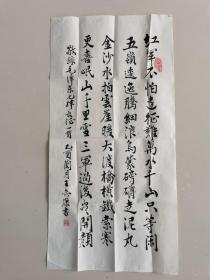 紅軍不怕遠征難萬水千山只等閑
五嶺逶迤騰細浪烏蒙磅礴走泥丸
金沙水拍雲崖暖大渡橋橫鐵索寒
更喜岷山千里雪三軍過後盡開顏
敬錄毛澤東七律長征一首 乙酉 月王志 書